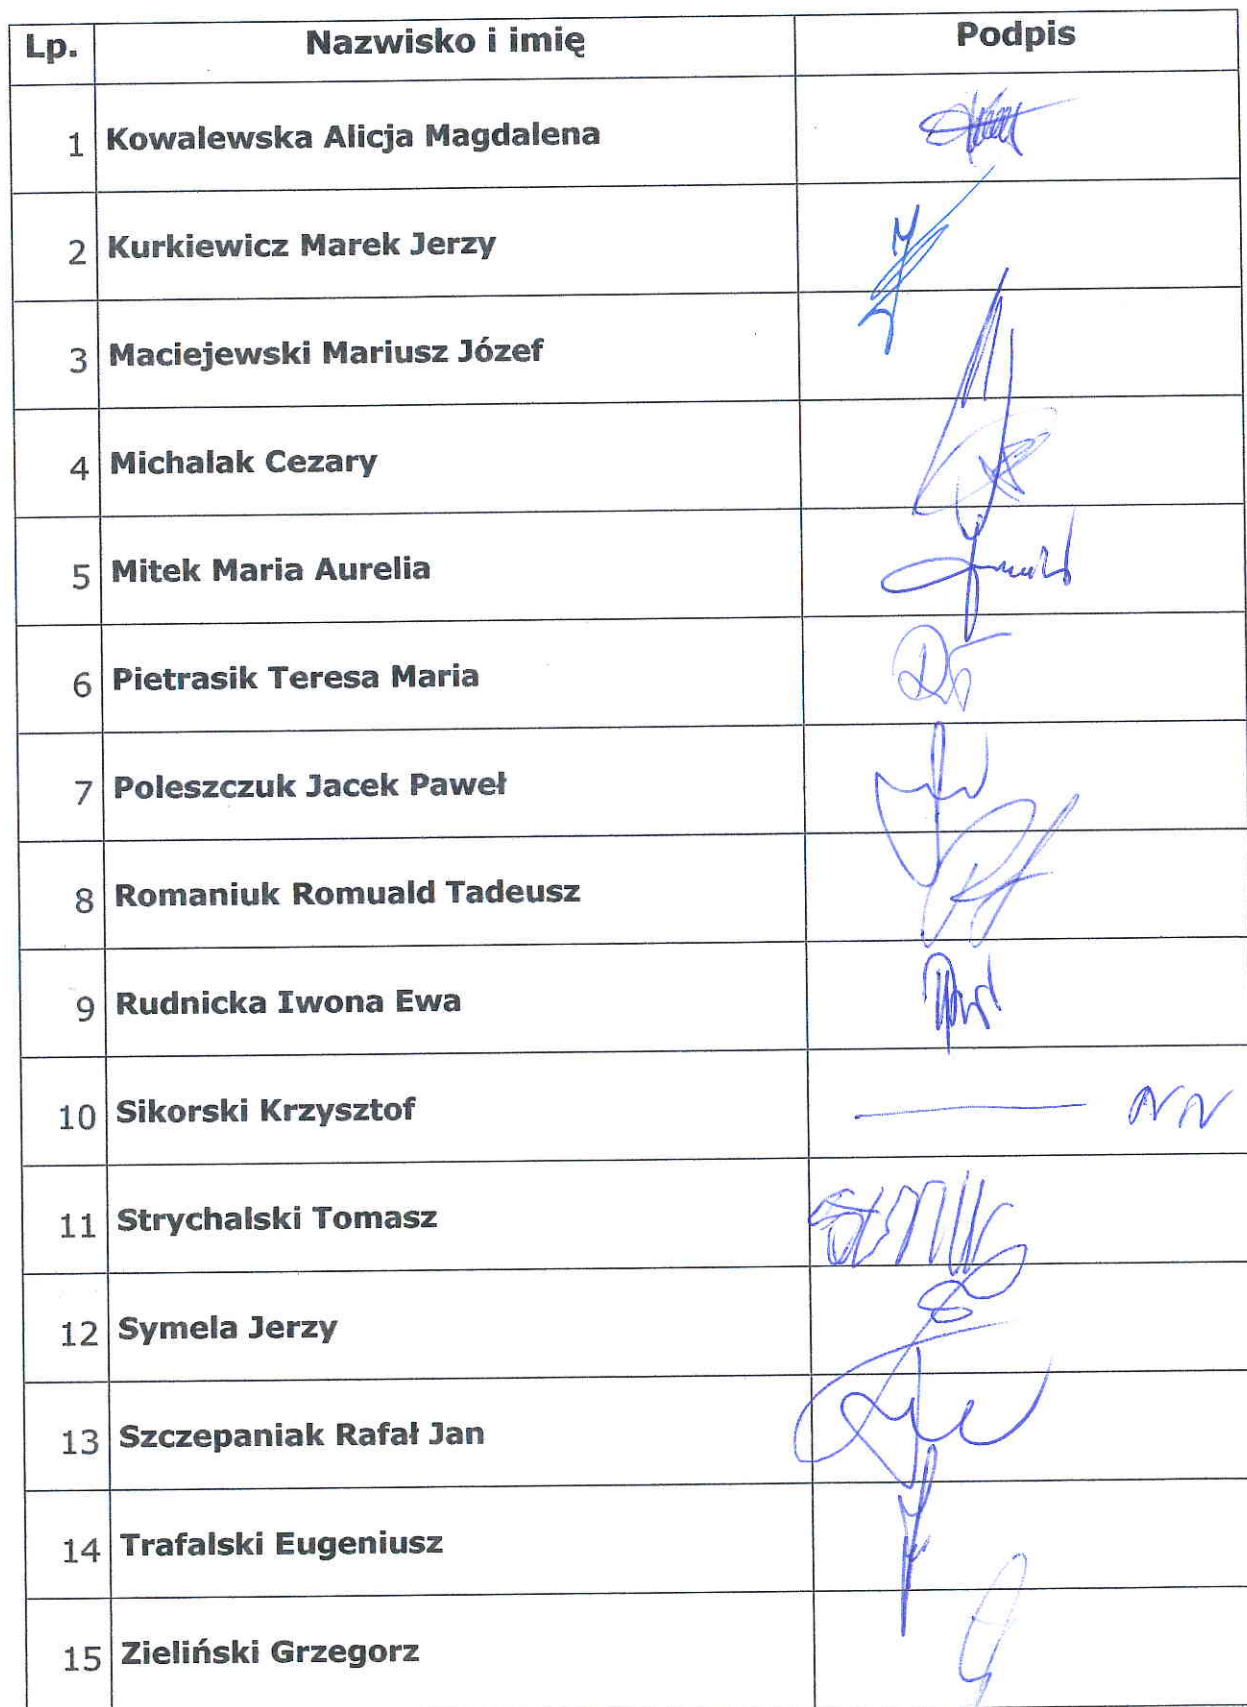 Lp. Nazwisko i imię Podpis
1 Kowalewska Alicja Magdalena
2 Kurkiewicz Marek Jerzy
3 Maciejewski Mariusz Józef
4 Michalak Cezary
5 Mitek Maria Aurelia
6 Pietrasik Teresa Maria
7 Poleszczuk Jacek Paweł
8 Romaniuk Romuald Tadeusz
9 Rudnicka Iwona Ewa
10 Sikorski Krzysztof NN
11 Strychalski Tomasz
12 Symela Jerzy
13 Szczepaniak Rafał Jan
14 Trafalski Eugeniusz
15 Zieliński Grzegorz